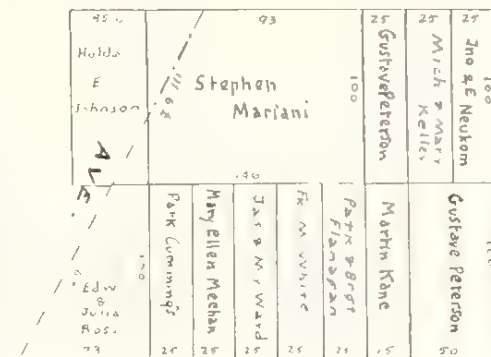 45
93
25
25
25
Hulda
E
Johnson
Stephen
Mariani
100
Gustave Peterson
Mich & Mary
Keller
Jno & E Neukom
100
146
Park Cummings
Mary Ellen Meehan
Jas & M Ward
Fk M White
Patk & Brgt
Flanagan
Martin Kane
Gustave Peterson
Edw
&
Julia
Ross
73
25
25
25
25
25
50